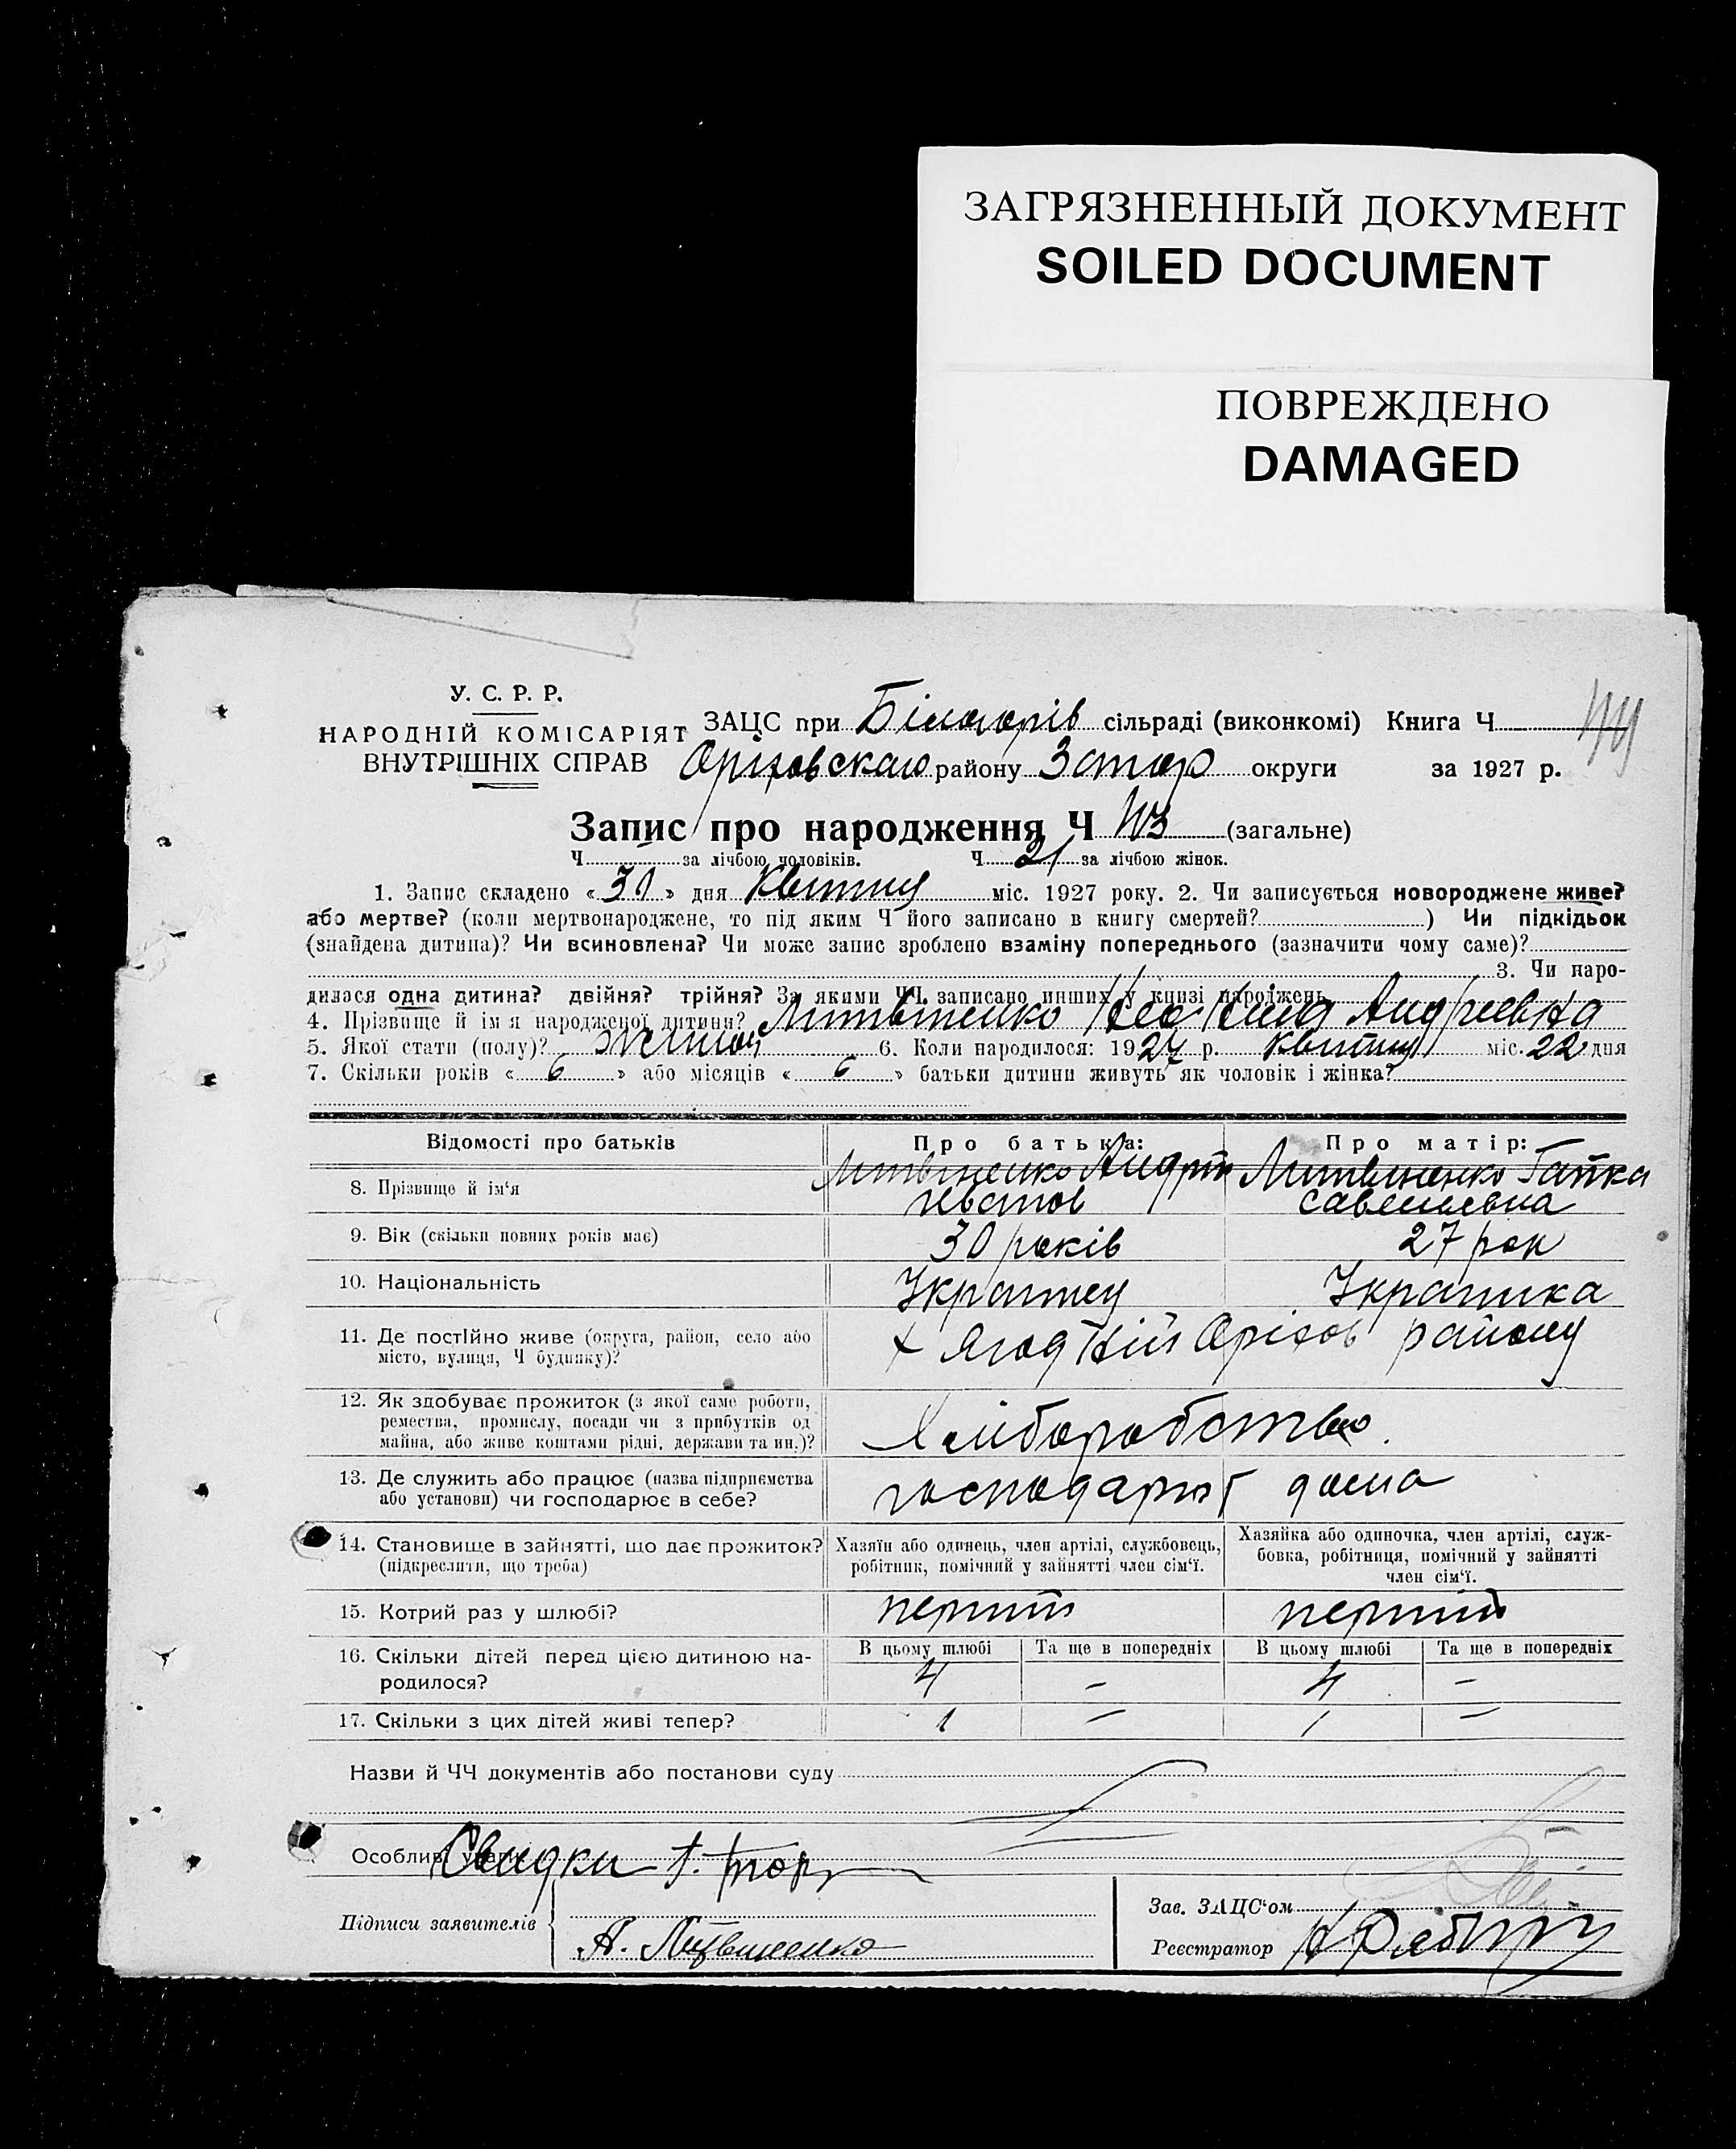 ЗАГРЯЗНЕННЫЙ ДОКУМЕНТ
SOILED DOCUMENT
ПОВРЕЖДЕНО
DAMAGED
У. С. Р. Р.
НАРОДНІЙ КОМІСАРІЯТ
ВНУТРІШНІХ СПРАВ
ЗАЦС при Білогорів сільраді (виконкомі) Книга Ч
Оріховскаго району Запор округи за 1927 р.
Запис про народження Ч 43 (загальне)
Ч за лічбою чоловіків. Ч 21 за лічбою жінок.
1. Запис складено « 30 » дня Квітня міс. 1927 року. 2. Чи записується новороджене живе?
або мертве? (коли мертвонароджене, то під яким Ч його записано в книгу смертей? ) Чи підкідьок
(знайдена дитина)? Чи всиновлена? Чи може запис зроблено взаміну попереднього (зазначити чому саме)?
3. Чи наро-
дилася одна дитина? двійня? трійня? За якими ЧЧ записано инших у книзі народжень
4. Прізвище й ім'я народженої дитини? Литвиненко Андреевна
5. Якої стати (полу)? жіночої 6. Коли народилося: 1927 р. Квітня міс. 22 дня
7. Скільки років « 6 » або місяців « 6 » батьки дитини живуть як чоловік і жінка?
Відомості про батьків
Про батька: Про матір:
8. Прізвище й ім'я
Литвиненко Андрій Литвиненко Гапка
Іванов Савельевна
9. Вік (скільки повних років має) 30 років 27 рок
10. Національність Українец Українка
11. Де постійно живе (округа, район, село або
місто, вулиця, Ч будинку)?
х Ягодній Оріхов району
12. Як здобуває прожиток (з якої саме роботи,
ремества, промислу, посади чи з прибутків од
майна, або живе коштами рідні, держави та ин.)?
Хліборобство.
13. Де служить або працює (назва підприємства
або установи) чи господарює в себе?
господарют дома
14. Становище в зайнятті, що дає прожиток?
(підкреслити, що треба)
Хазяїн або одинець, член артілі, службовець,
робітник, помічний у зайнятті член сім'ї.
Хазяйка або одиночка, член артілі, служ-
бовка, робітниця, помічний у зайнятті
член сім'ї.
15. Котрий раз у шлюбі? перший перший
В цьому шлюбі Та ще в попередніх В цьому шлюбі Та ще в попередніх
16. Скільки дітей перед цією дитиною на-
родилося?
4 – 4 –
17. Скільки з цих дітей живі тепер? 1 – 1 –
Назви й ЧЧ документів або постанови суду
Особливі уваги Свидки
Підписи заявителів
А. Литвиненко
Зав. ЗАЦС'ом
Реєстратор